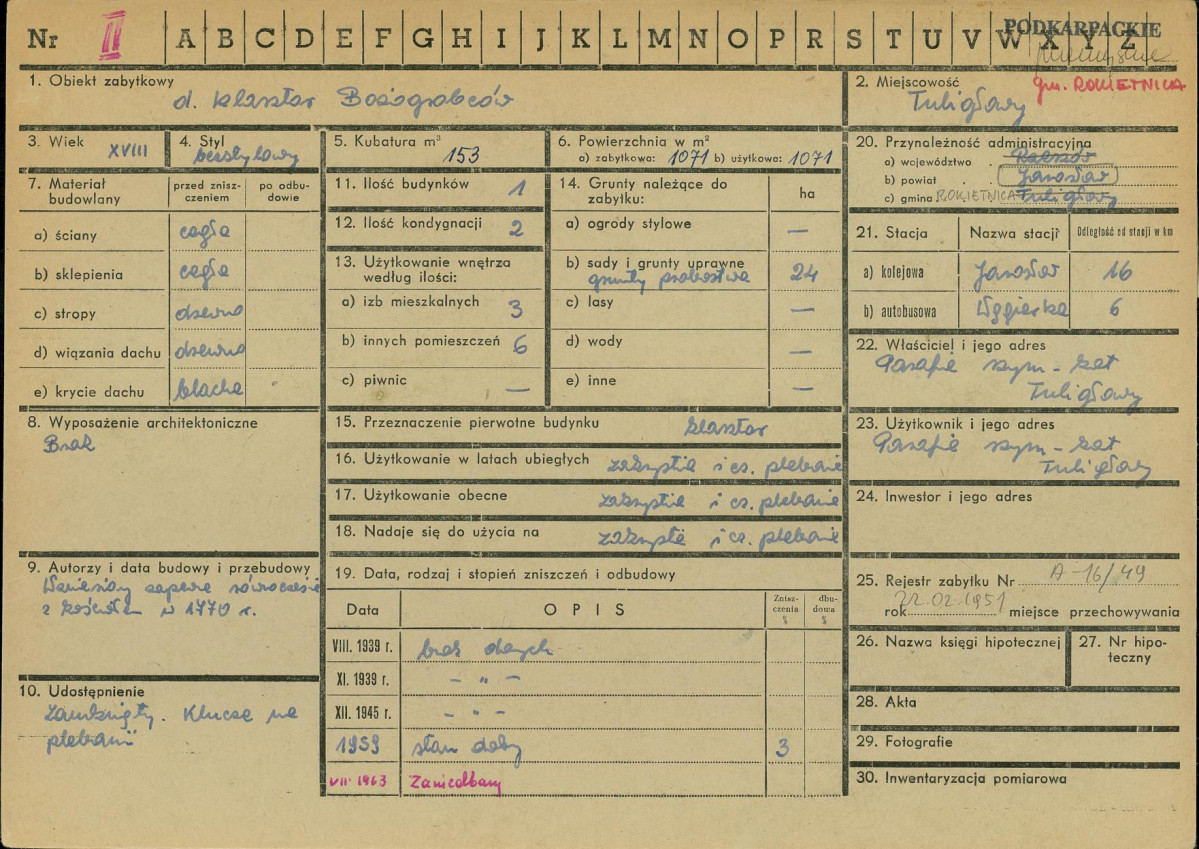 Nr II A B C D E F G H I J K L M N O P R S T U V W X Y Z
PODKARPACKIE
1. Obiekt zabytkowy
d. klasztor Bożogrobców
2. Miejscowość
gm. ROKIETNICA
Tuligłowy
3. Wiek XVIII
4. Styl
bezstylowy
5. Kubatura m³
153
6. Powierzchnia w m²
a) zabytkowa: 1071 b) użytkowa: 1071
7. Materiał budowlany
przed zniszczeniem
po odbudowie
a) ściany cegła
b) sklepienia cegła
c) stropy drewno
d) wiązania dachu drewno
e) krycie dachu blacha
8. Wyposażenie architektoniczne
Brak
9. Autorzy i data budowy i przebudowy
Wzniesiony zapewne równocześnie
z kościołem w 1770 r.
10. Udostępnienie
Zamknięty. Klucze na
plebanii
11. Ilość budynków 1
12. Ilość kondygnacji 2
13. Użytkowanie wnętrza
według ilości:
a) izb mieszkalnych 3
b) innych pomieszczeń 6
c) piwnic —
14. Grunty należące do
zabytku:
ha
a) ogrody stylowe —
b) sady i grunty uprawne
grunty probostwa 24
c) lasy —
d) wody —
e) inne —
15. Przeznaczenie pierwotne budynku klasztor
16. Użytkowanie w latach ubiegłych zakrystia i cz. plebanie
17. Użytkowanie obecne zakrystia i cz. plebanie
18. Nadaje się do użycia na zakrystię i cz. plebanie
19. Data, rodzaj i stopień zniszczeń i odbudowy
Data OPIS Zniszczenia % dbudowa %
VIII. 1939 r. brak danych
XI. 1939 r. - „ -
XII. 1945 r. - „ -
1959 stan dobry 3
VII. 1963 Zaniedbany
20. Przynależność administracyjna
a) województwo . Rzeszów
b) powiat . . Jarosław
c) gmina ROKIETNICA Tuligłowy
21. Stacja Nazwa stacji Odległość od stacji w km
a) kolejowa Jarosław 16
b) autobusowa Węgierka 6
22. Właściciel i jego adres
Parafia rzym-kat
Tuligłowy
23. Użytkownik i jego adres
Parafia rzym-kat
Tuligłowy
24. Inwestor i jego adres
25. Rejestr zabytku Nr A-16/49
rok 22.02.1951 miejsce przechowywania
26. Nazwa księgi hipotecznej
27. Nr hipoteczny
28. Akta
29. Fotografie
30. Inwentaryzacja pomiarowa